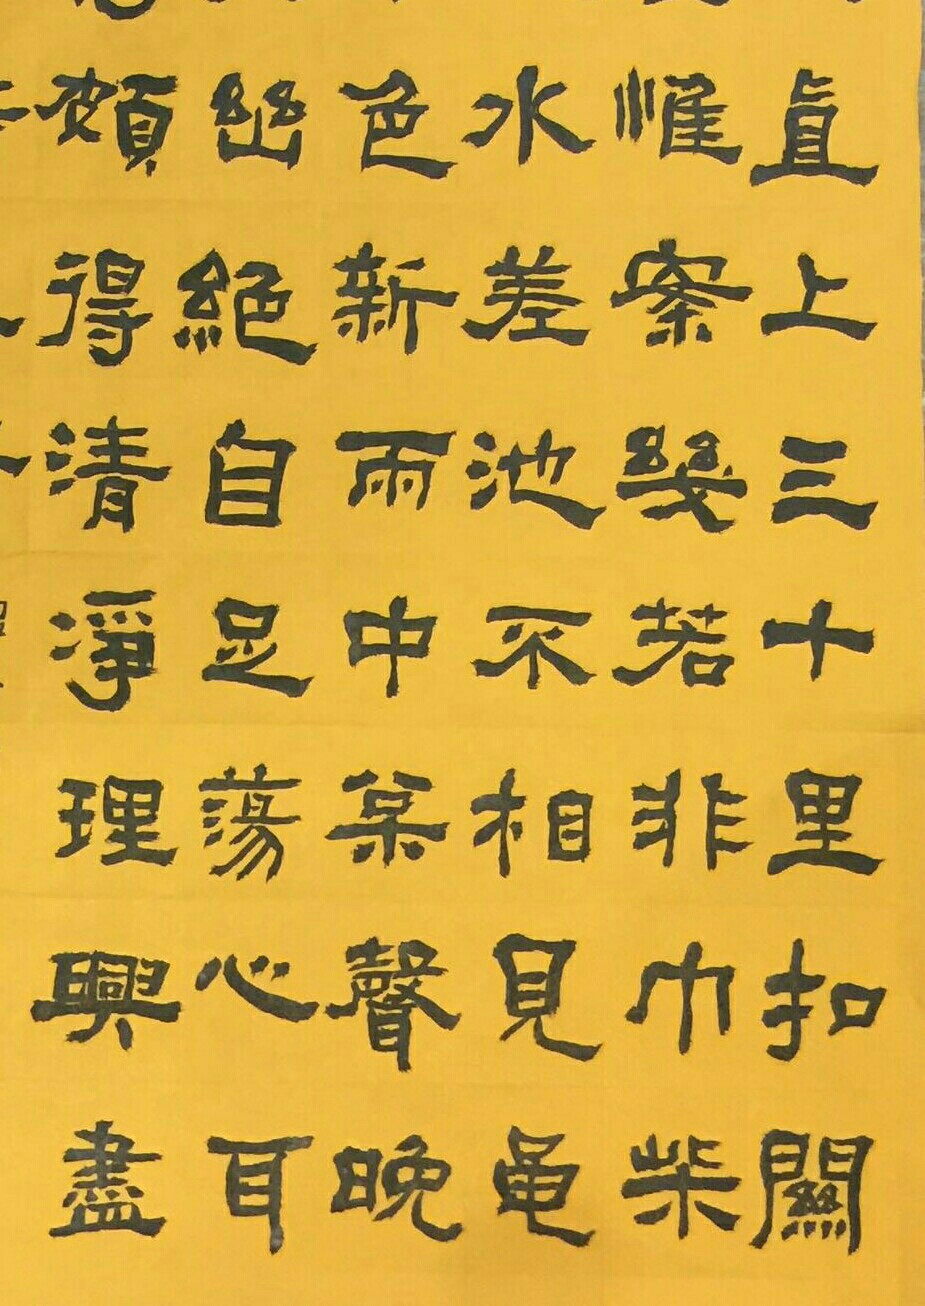 直上三十里扣關
惟案幾若非巾柴
水差池不相見黽
色新雨中枀聲晚
幽絕自足蕩心耳
頗得清淨理興盡